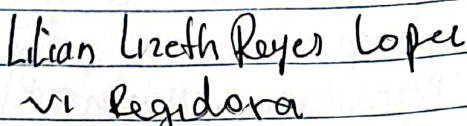 Lilian Lizeth Reyes Lopez
VI Regidora